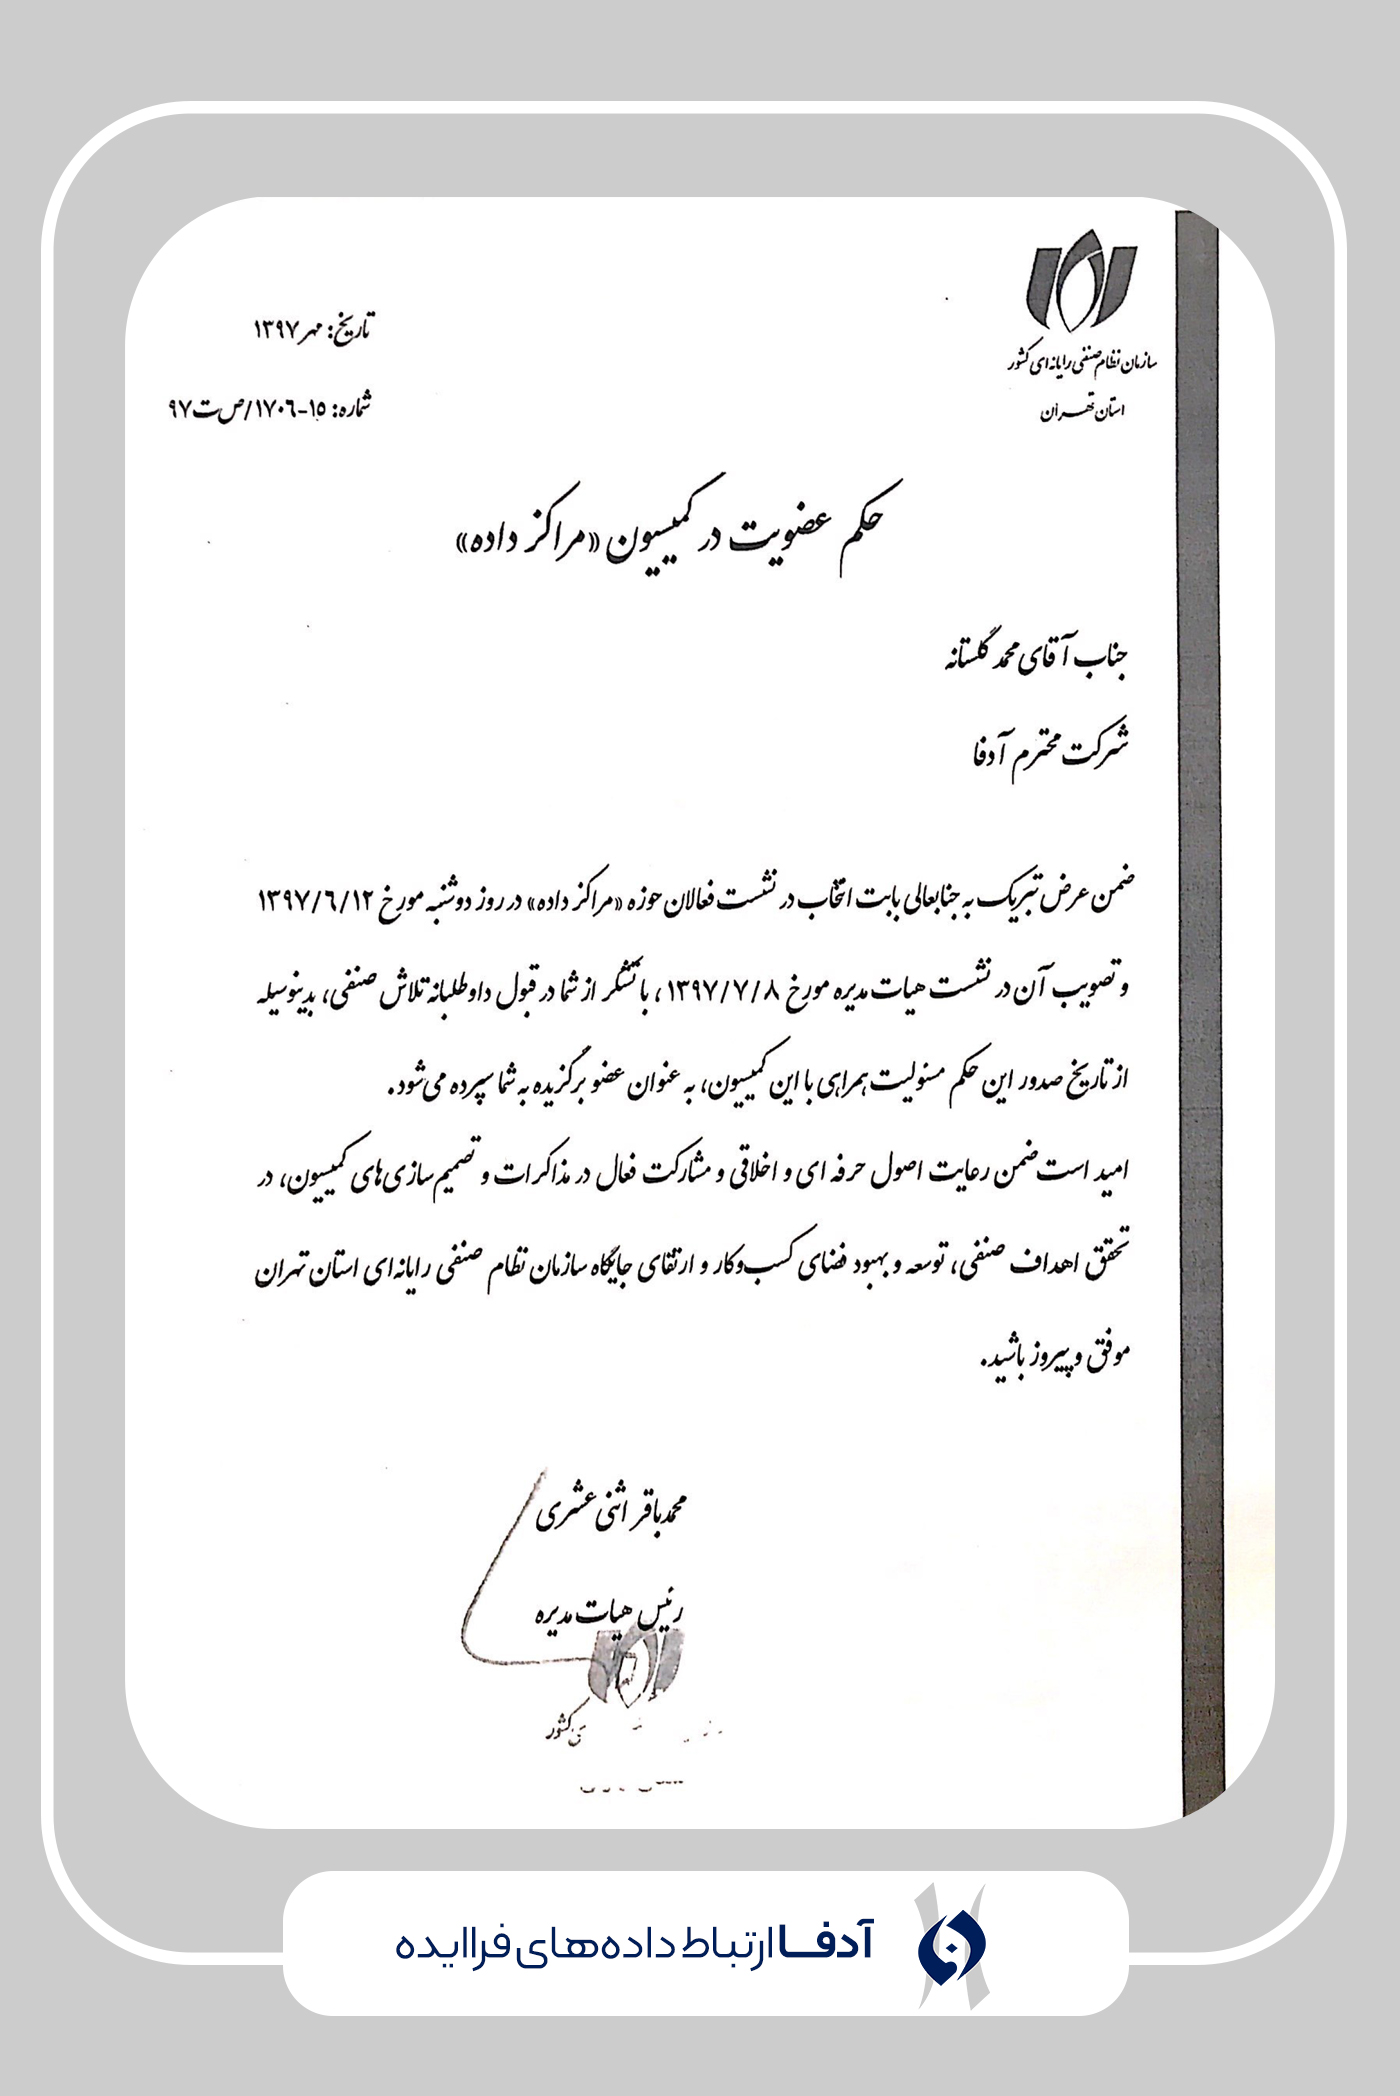 سازمان نظام صنفی رایانه ای کشور
استان تهران
تاریخ: مهر ۱۳۹۷
شماره: ۱۵-۱۷۰۶/ص ت ۹۷
حکم عضویت در کمیسیون «مراکز داده»
جناب آقای محمد گلستانه
شرکت محترم آدفا
ضمن عرض تبریک به جنابعالی بابت انتخاب در نشست فعالان حوزه «مراکز داده» در روز دوشنبه مورخ ۱۳۹۷/۶/۱۲
و تصویب آن در نشست هیات مدیره مورخ ۱۳۹۷/۷/۸، با تشکر از شما در قبول داوطلبانه تلاش صنفی، بدینوسیله
از تاریخ صدور این حکم مسئولیت همراهی با این کمیسیون، به عنوان عضو برگزیده به شما سپرده می‌شود.
امید است ضمن رعایت اصول حرفه ای و اخلاقی و مشارکت فعال در مذاکرات و تصمیم‌سازی‌های کمیسیون، در
تحقق اهداف صنفی، توسعه و بهبود فضای کسب‌وکار و ارتقای جایگاه سازمان نظام صنفی رایانه‌ای استان تهران
موفق و پیروز باشید.
محمدباقر اثنی عشری
رئیس هیات مدیره
ی کشور
آدفا ارتباط داده‌های فراایده